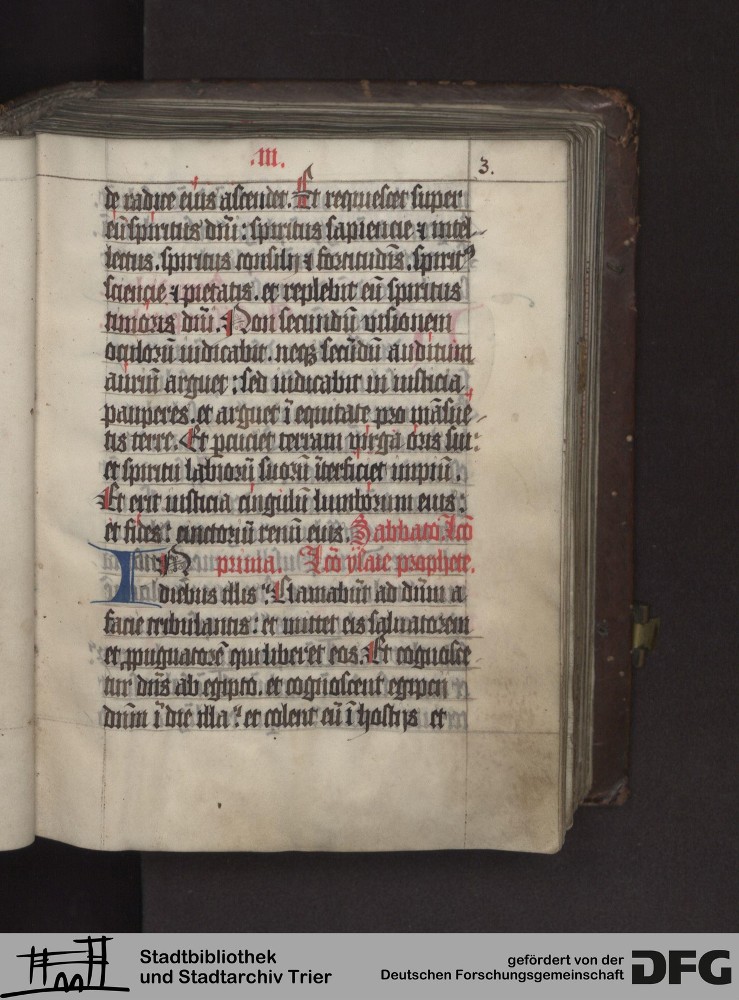 .III.
3.
de radice eius ascendet. Et requiescet super
eū spiritus dn̄i : spiritus sapiencie ⁊ intel-
lectus. spiritus consilij ⁊ fortitudīs. spiritꝰ
sciencie ⁊ pietatis. et replebit eū spiritus
timoris dn̄i. Non secundū visionem
oculorū iudicabit. neqꝫ secūdū auditum
auriū arguet : sed iudicabit in iusticia
pauperes. et arguet ī equitate pro māsue-
tis terre. Et ꝑcuciet terram virga oris sui :
et spiritu labiorū suorū īterficiet impiū.
Et erit iusticia cingulū lumborum eius :
et fides : cinctoriū renū eius. Sabbato. Lc̄o
IN prima. Lc̄o ysaie prophete.
diebus illis : Clamabūt ad dn̄m a
facie tribulantis : et mittet eis saluatorem
et ꝓpugnatorē qui liberet eos. Et cognosce-
tur dn̄s ab egipto. et cognoscent egipcij
dn̄m ī die illa : et colent eū ī hostijs et
Stadtbibliothek
und Stadtarchiv Trier
gefördert von der
Deutschen Forschungsgemeinschaft
DFG